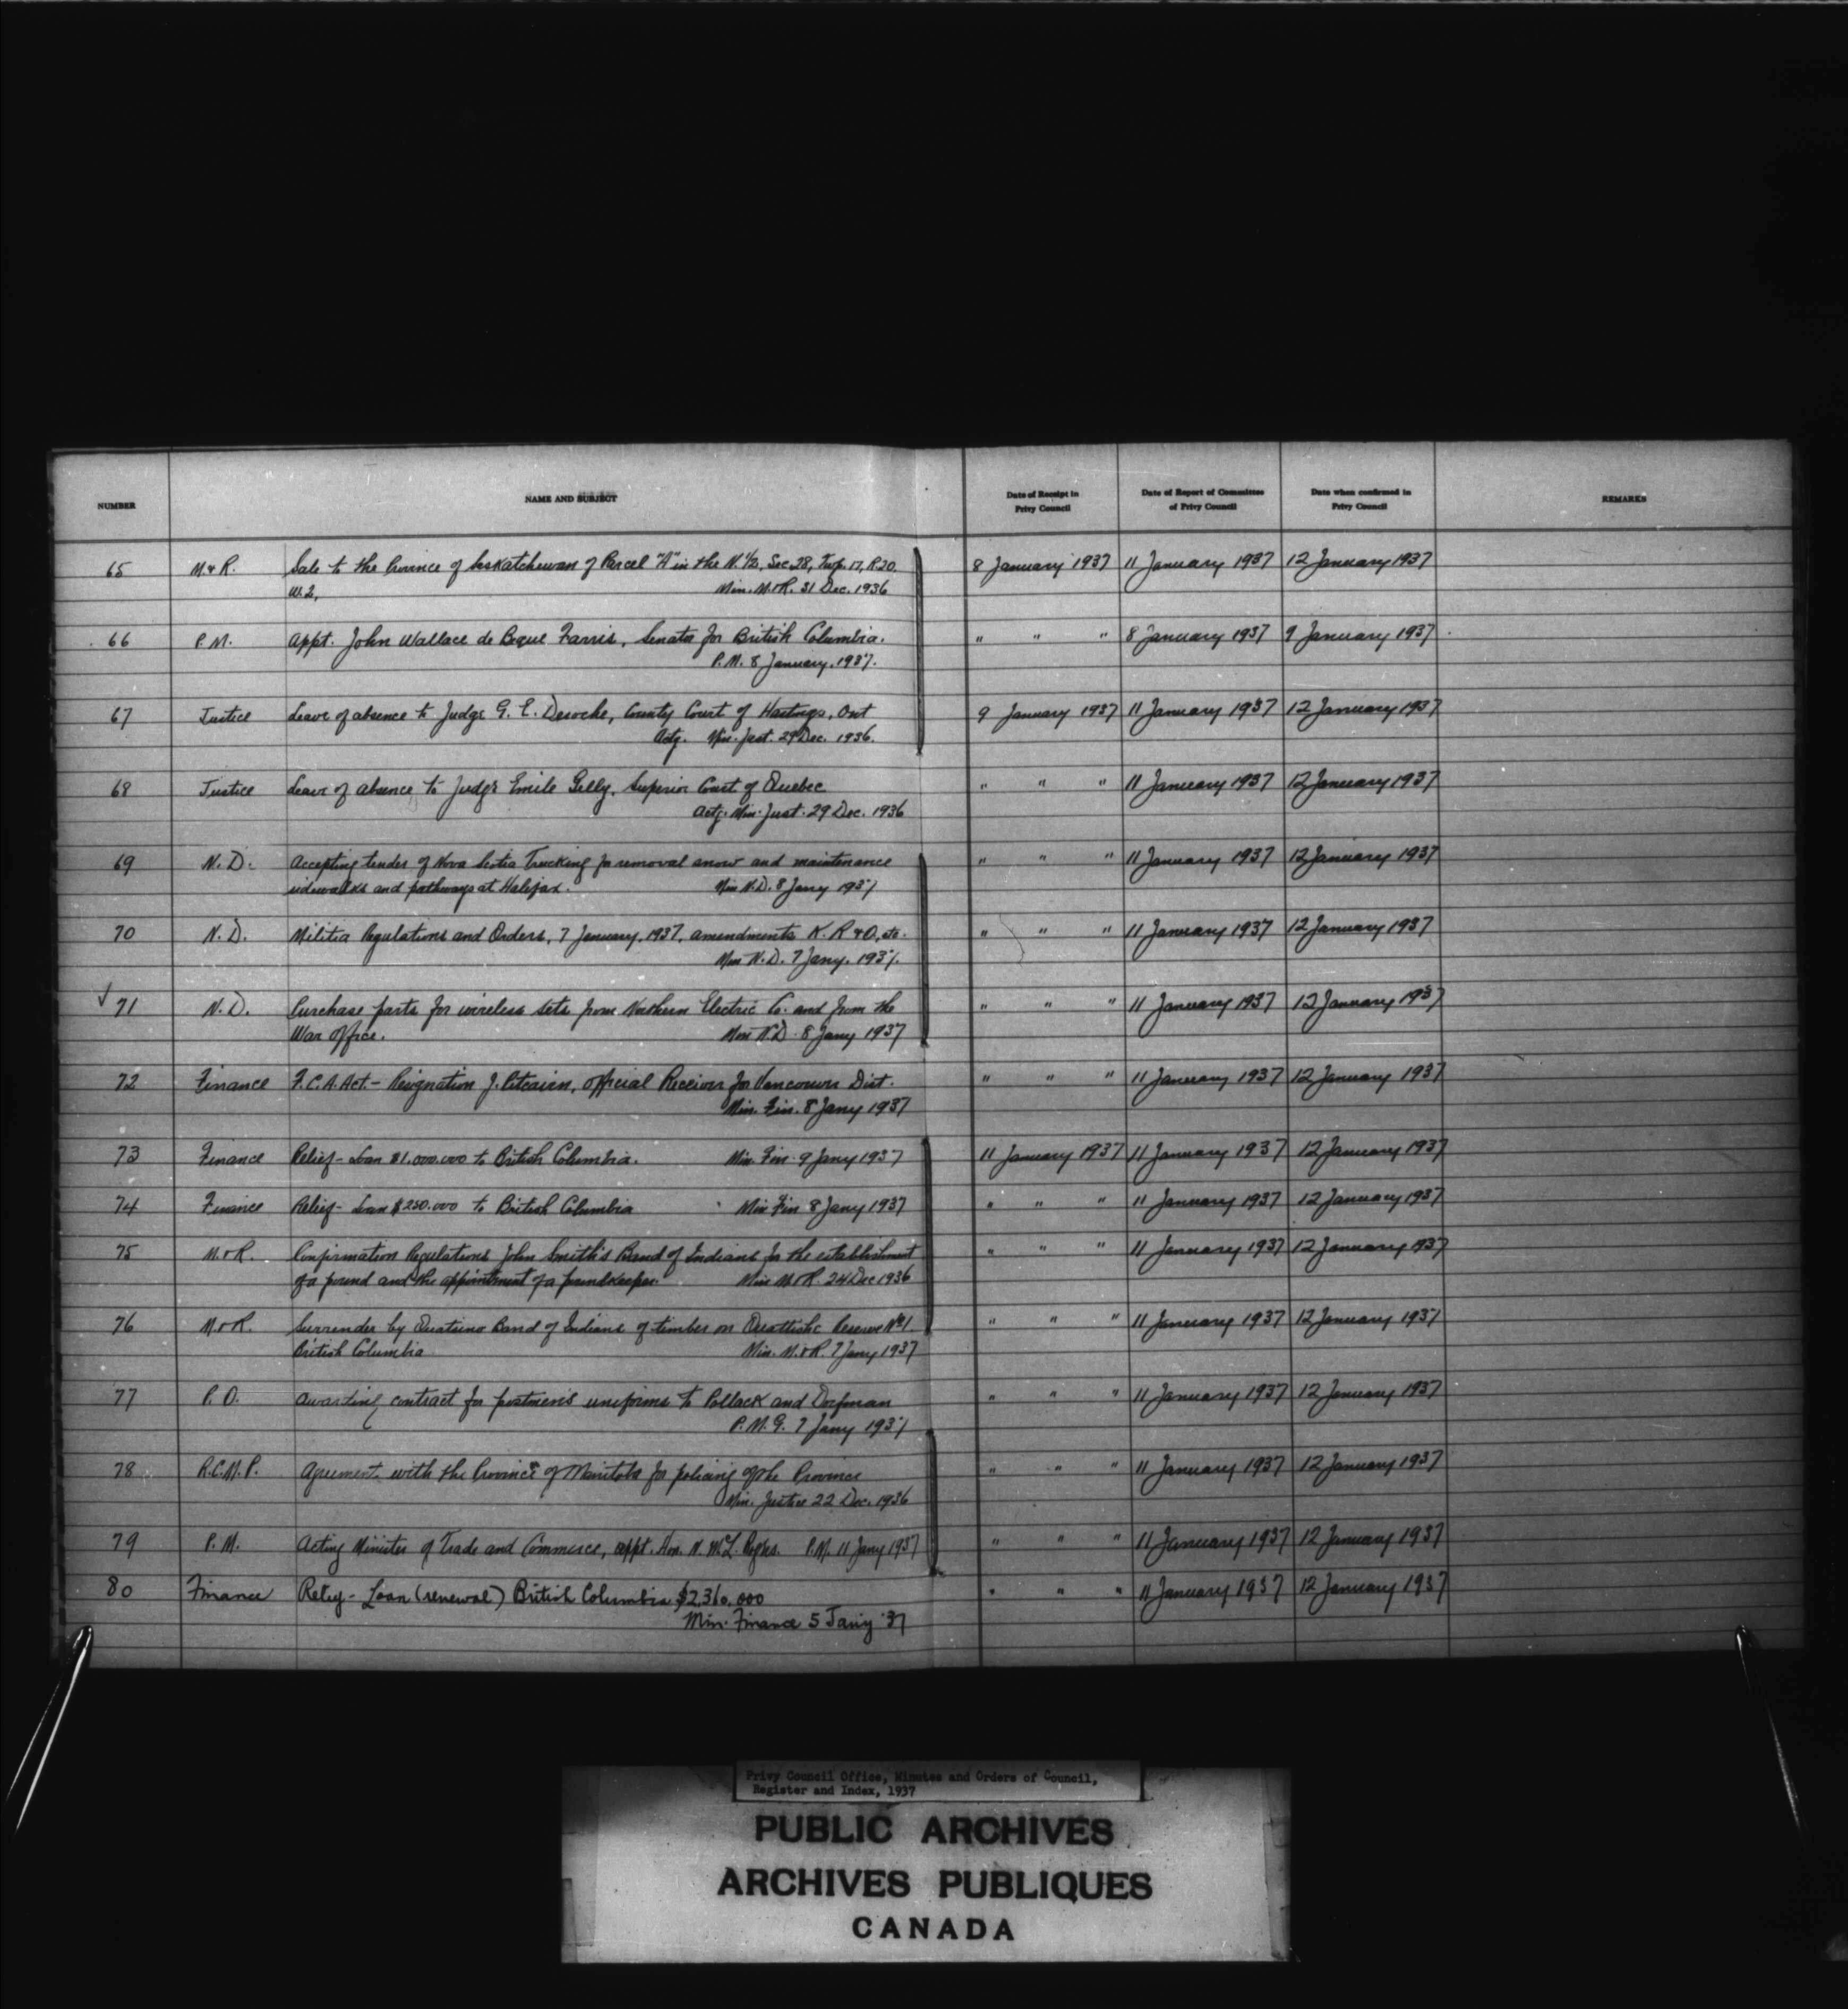 NUMBER NAME AND SUBJECT Date of Receipt in Privy Council Date of Report of Committee of Privy Council Date when confirmed in Privy Council REMARKS
65 M. & R. Sale to the Province of Saskatchewan of Parcel "A" in the N. 1/2, Sec. 28, Twp. 17, R. 20, 8 January 1937 11 January 1937 12 January 1937
W. 2, Min. M. & R. 31 Dec. 1936
66 P. M. Appt. John Wallace de Beque Farris, Senator for British Columbia. " " " 8 January 1937 9 January 1937
P. M. 8 January, 1937.
67 Justice Leave of absence to Judge G. E. Deroche, County Court of Hastings, Ont 9 January 1937 11 January 1937 12 January 1937
Actg. Min. Just. 29 Dec. 1936.
68 Justice Leave of absence to Judge Emile Gelly, Superior Court of Quebec " " " 11 January 1937 12 January 1937
Actg. Min. Just. 29 Dec. 1936
69 N. D. Accepting tender of Nova Scotia Trucking for removal snow and maintenance " " " 11 January 1937 12 January 1937
sidewalks and pathways at Halifax. Min N.D. 8 Jany 1937
70 N. D. Militia Regulations and Orders, 7 January, 1937, amendments K. R & O, etc. " " " 11 January 1937 12 January 1937
Min N. D. 7 Jany. 1937.
√ 71 N. D. Purchase parts for wireless sets from Northern Electric Co. and from the " " " 11 January 1937 12 January 1937
War Office. Min N.D. 8 Jany 1937
72 Finance F. C. A. Act. - Resignation J. Pitcairn, Official Receiver for Vancouver Dist. " " " 11 January 1937 12 January 1937
Min. Fin. 8 Jany 1937
73 Finance Relief - Loan $1,000,000 to British Columbia. Min. Fin. 9 Jany 1937 11 January 1937 11 January 1937 12 January 1937
74 Finance Relief - Loan $250.000 to British Columbia Min Fin 8 Jany 1937 " " " 11 January 1937 12 January 1937
75 M. & R. Confirmation Regulations John Smith's Band of Indians for the establishment " " " 11 January 1937 12 January 1937
of a pound and the appointment of a poundkeeper. Min M. & R. 24 Dec 1936
76 M. & R. Surrender by Quatsino Band of Indians of timber on Quattishe Reserve No 1. " " " 11 January 1937 12 January 1937
British Columbia Min. M. & R. 7 Jany 1937
77 P. O. Awarding contract for postmen's uniforms to Pollack and Dorfman " " " 11 January 1937 12 January 1937
P. M. G. 7 Jany 1937
78 R.C.M.P. Agreement with the Province of Manitoba for policing of the Province " " " 11 January 1937 12 January 1937
Min. Justice 22 Dec. 1936
79 P. M. Acting Minister of Trade and Commerce, appt. Hon. N. McL. Rogers. P.M. 11 Jany 1937 " " " 11 January 1937 12 January 1937
80 Finance Relief - Loan (renewal) British Columbia $2,360,000 " " " 11 January 1937 12 January 1937
Min. Finance 5 Jany '37
Privy Council Office, Minutes and Orders of Council,
Register and Index, 1937
PUBLIC ARCHIVES
ARCHIVES PUBLIQUES
CANADA